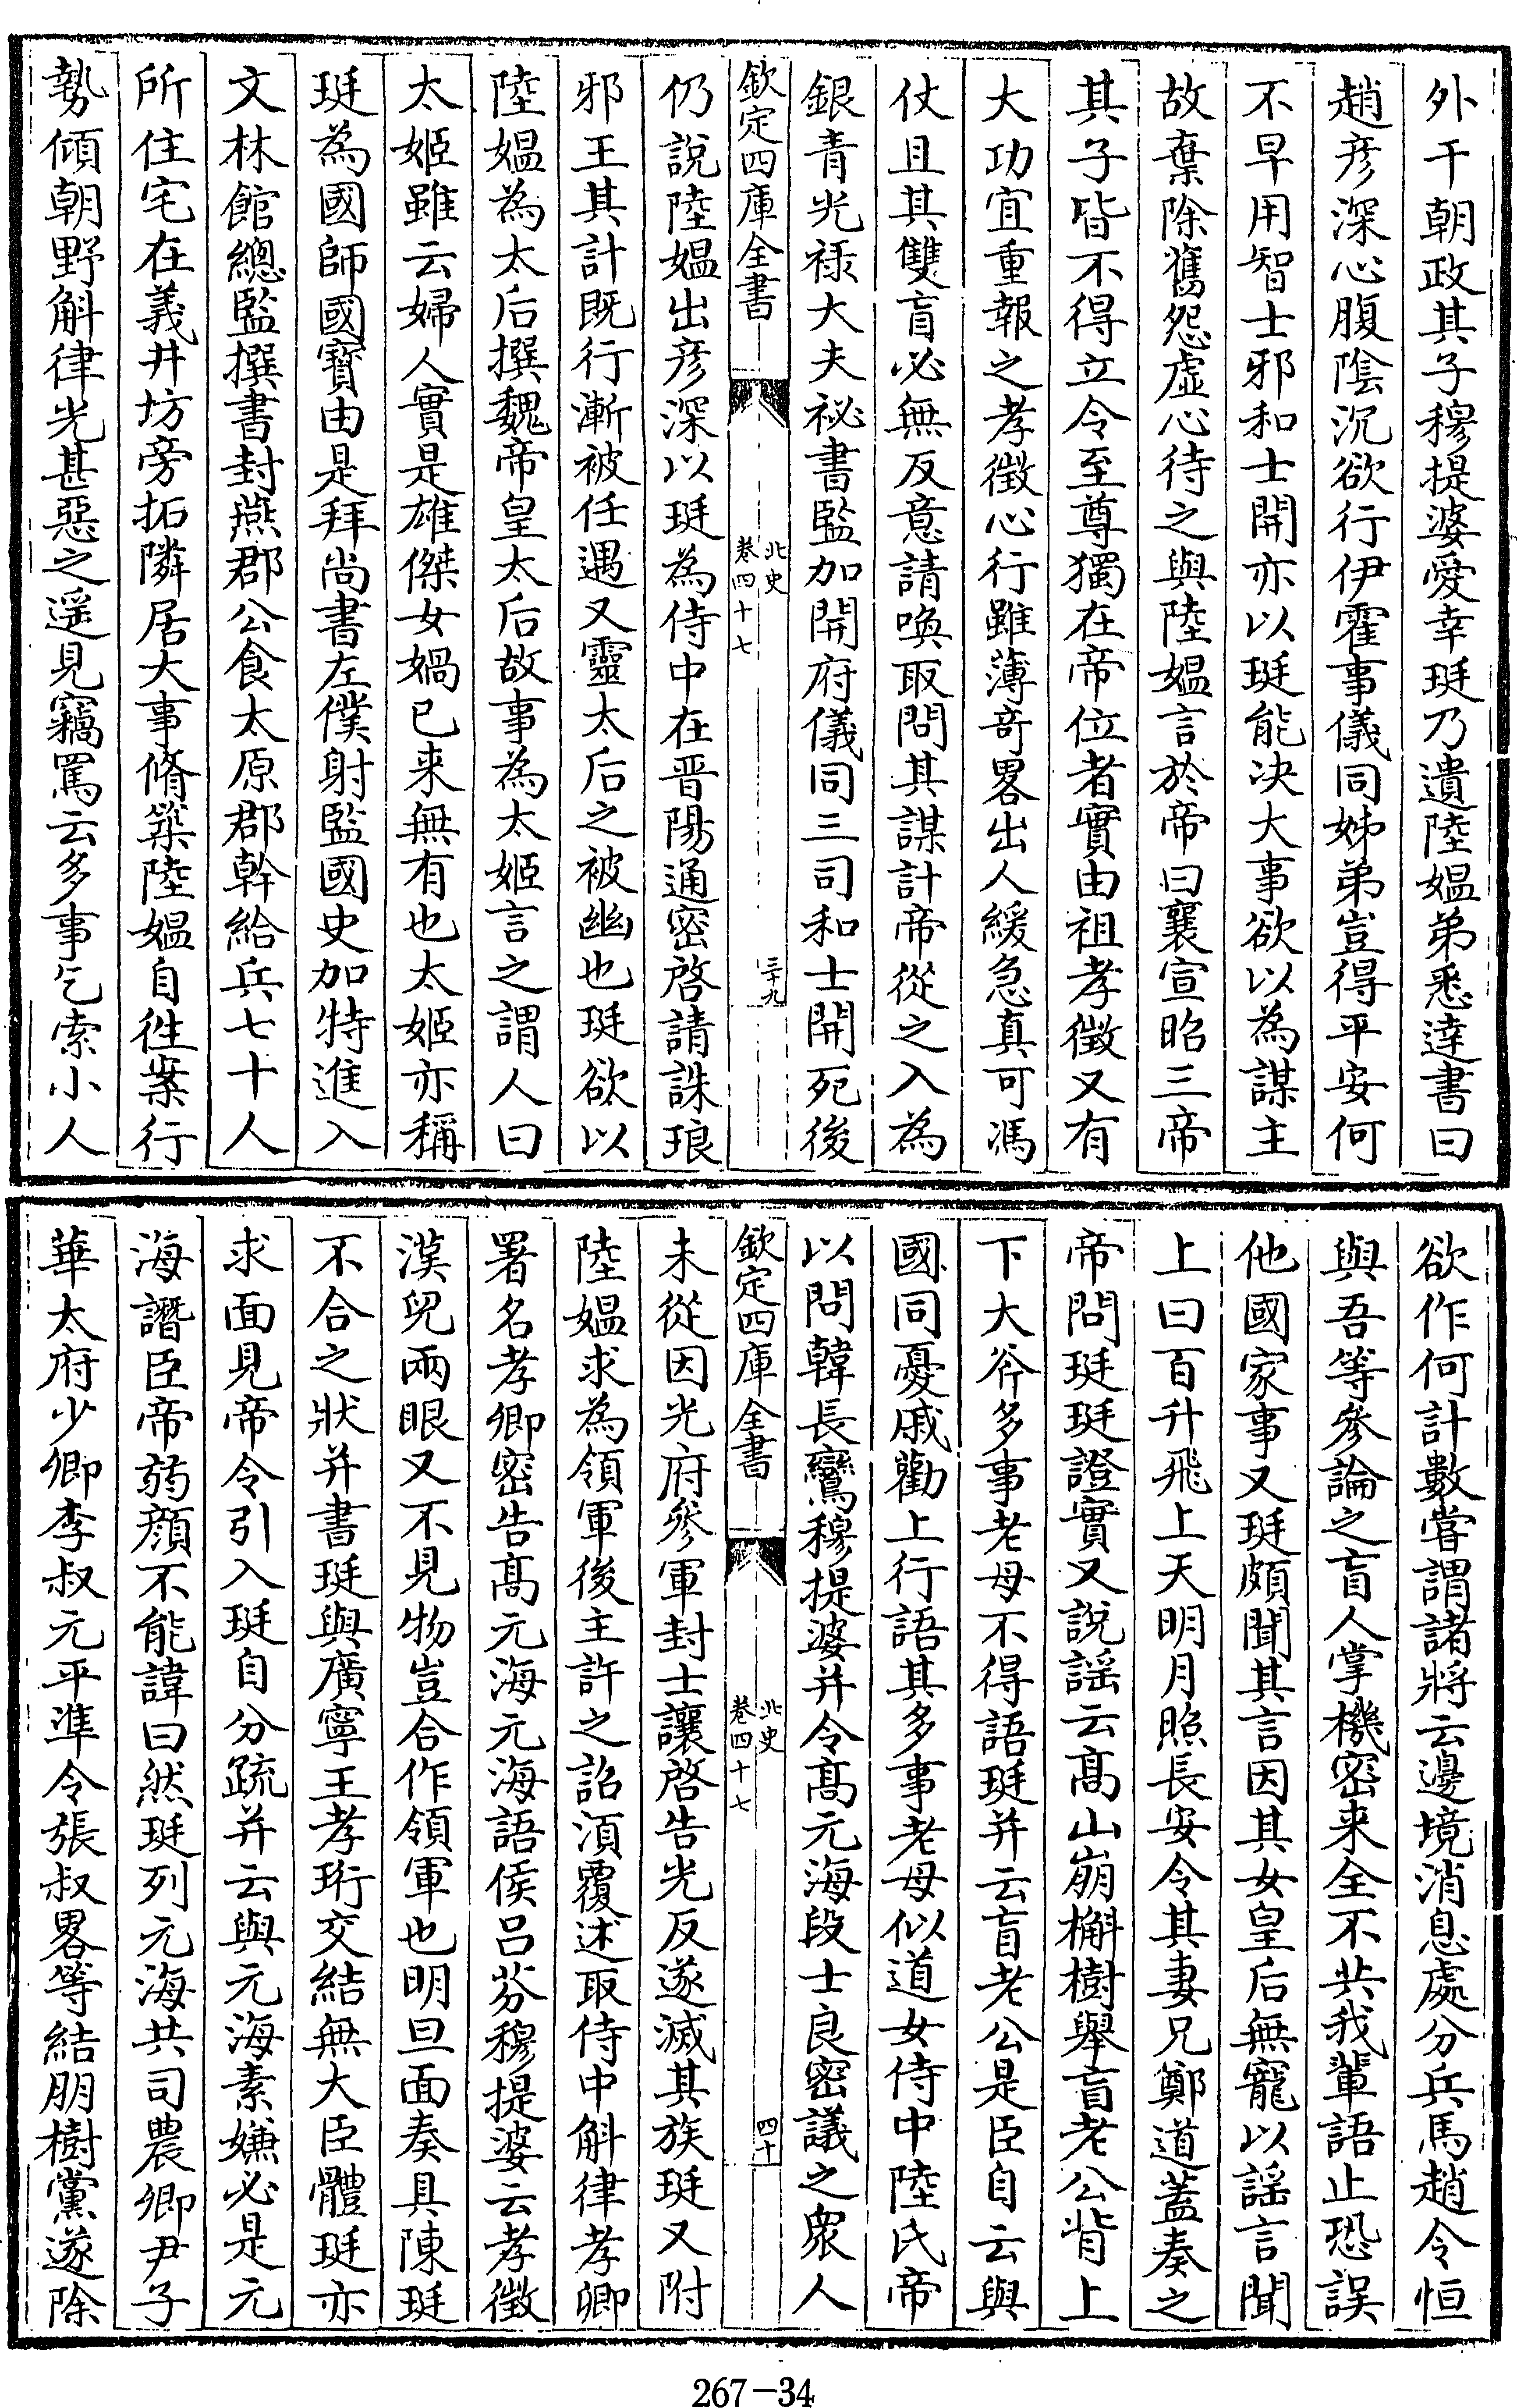 外干朝政其子穆提婆愛幸珽乃遺陸媼弟悉達書曰
趙彦深心腹陰沉欲行伊霍事儀同姊弟豈得平安何
不早用智士邪和士開亦以珽能决大事欲以為謀主
故棄除舊怨虚心待之與陸媼言於帝曰襄宣昭三帝
其子皆不得立令至尊獨在帝位者實由祖孝徵又有
大功宜重報之孝徵心行雖薄竒畧出人緩急真可馮
仗且其雙盲必無反意請喚取問其謀計帝從之入為
銀青光禄大夫祕書監加開府儀同三司和士開死後
欽定四庫全書
北史
卷四十七
三十九
仍說陸媼出彦深以珽為侍中在晋陽通密啓請誅琅
邪王其計既行漸被任遇又靈太后之被幽也珽欲以
陸媼為太后撰魏帝皇太后故事為太姬言之謂人曰
太姬雖云婦人實是雄傑女媧已来無有也太姬亦稱
珽為國師國寳由是拜尚書左僕射監國史加特進入
文林館總監撰書封燕郡公食太原郡幹給兵七十人
所住宅在義井坊旁拓隣居大事脩築陸媼自徃案行
勢傾朝野斛律光甚惡之遥見竊罵云多事乞索小人
欲作何計數嘗謂諸將云邊境消息處分兵馬趙令恒
與吾等參論之盲人掌機密来全不共我輩語止恐誤
他國家事又珽頗聞其言因其女皇后無寵以謡言聞
上曰百升飛上天明月照長安令其妻兄鄭道蓋奏之
帝問珽珽證實又說謡云髙山崩槲樹舉盲老公背上
下大斧多事老母不得語珽并云盲老公是臣自云與
國同憂戚勸上行語其多事老母似道女侍中陸氏帝
以問韓長鸞穆提婆并令髙元海段士良密議之衆人
欽定四庫全書
北史
卷四十七
四十
未從因光府參軍封士讓啓告光反遂滅其族珽又附
陸媼求為領軍後主許之詔湏覆述取侍中斛律孝卿
署名孝卿密告髙元海元海語侯吕芬穆提婆云孝徵
漢兒兩眼又不見物豈合作領軍也明旦面奏具陳珽
不合之狀并書珽與廣寧王孝珩交結無大臣體珽亦
求面見帝令引入珽自分疏并云與元海素嫌必是元
海譖臣帝弱顔不能諱曰然珽列元海共司農卿尹子
華太府少卿李叔元平準令張叔畧等結朋樹黨遂除
267-34